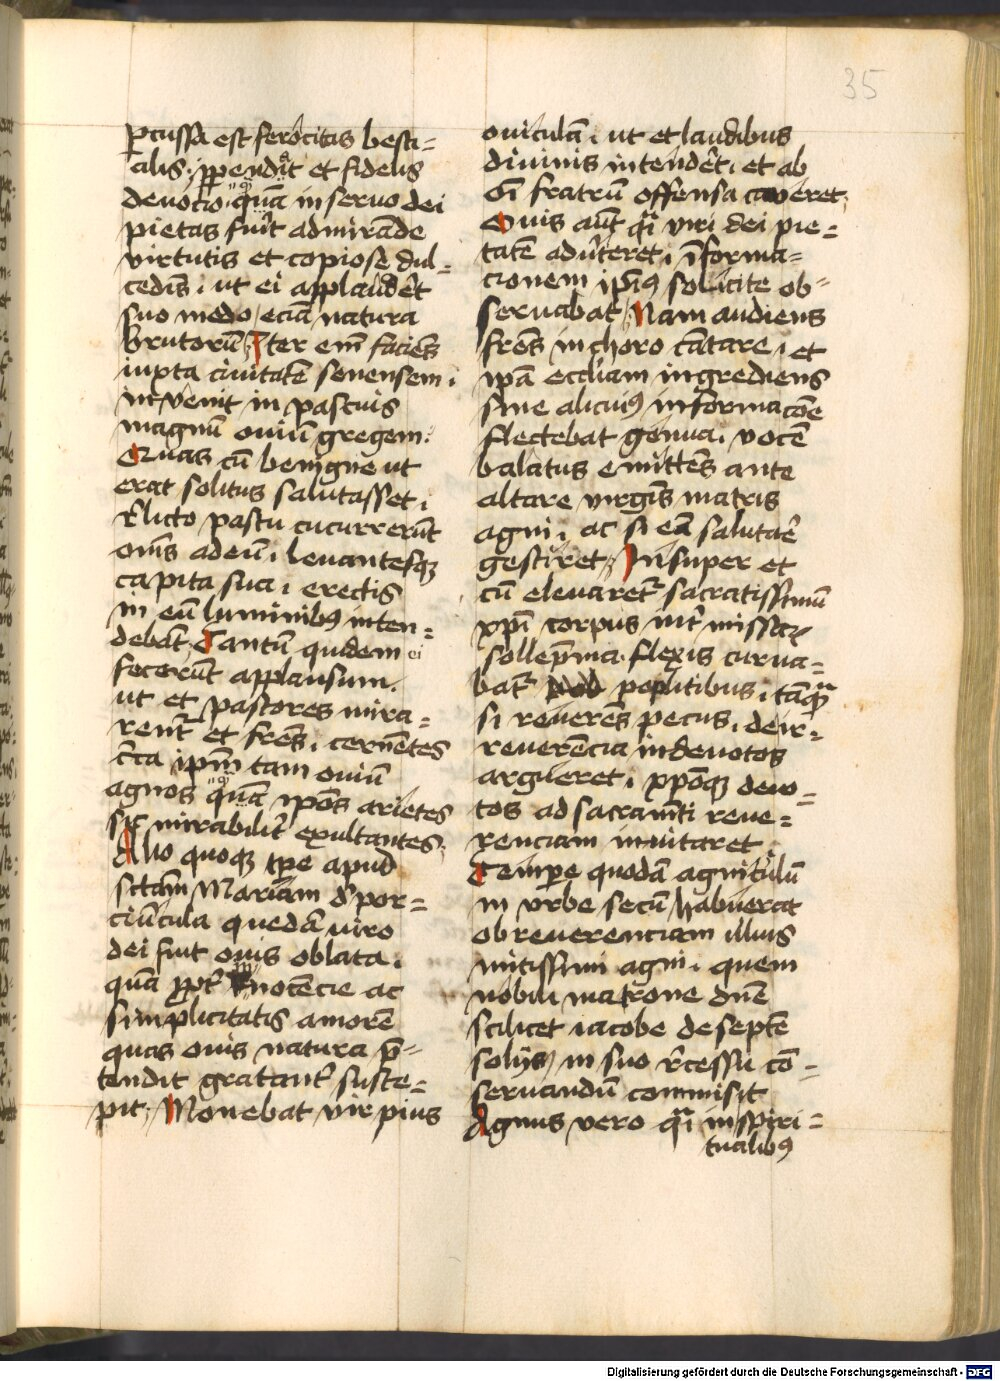 35
ꝑcussa est ferocitas besti=
alis; ꝑpendit et fidelis
deuocio quam̄ in seruo dei
pietas fuit admirande
virtutis et copiose dul=
cedis ut ei applauderet
suo modo eciā natura
brutorū Iter em̄ faciēs
iuxta ciuitatē senensem
inuenit in pascuis
magnū ouiū gregem.
Quas cū benigne ut
erat solitus salutasset
rl̄icto pastu cucurrerūt
om̄s ad eū leuantesqꝫ
capita sua erectis
in eū luminibꝰ inten=
debāt Tantū quidem ei
fecerūt applausum.
ut et pastores mira=
rent̄ et fr̄es cernētes
cīrca ip̄m tam ouiū
agnos quā ip̄os arietes
sic mirabilit̄ exultantes;
Alio quoqꝫ tp̄e apud
sc̄tam Mariam d̄ por=
ciūcula quedā viro
dei fuit ouis oblata.
quā ꝓpt̄ innocēcie ac
simplicitatis amorē
quas ouis natura p̄=
tendit gratant̄ susce=
pit; Monebat vir pius
ouiculā ut et laudibus
diuinis intendēt et ab
om̄ī fratrū offensa caueret;
Ouis aūt q̄i viri dei pie=
tatē aduīteret īforma=
cionem ip̄ꝰ solicite ob=
seruabat; Nam audiens
frēs in choro cātare et
ip̄a eccl̄iam ingrediens
sine alicuiꝰ informacōe
flectebat genua. vocē
balatus emittēs ante
altare virgīs matris
agni ac si eā salutar̄e
gestiret; Insuper et
cū eleuaret̄ sacratissimū
xp̄i corpus int̄ missarꝫ
sollēp̄nia. flexis curua=
bat̄ poplitibus tāq̄
si reuerēs pecus. de ir=
reuerēcia indeuotos
argueret ꝓpōqꝫ deuo=
tos ad sacramēti reue=
renciam inuitaret
Tempe quodā agniculū
in vrbe secū habuerat
ob reuerenciam illius
mitissimi agni. quem
nobili matrone dn̄e
scilicet iacobe de septē
solijs in suo rēcessu cō=
seruandū commisit
Agnus vero q̄i in spiri=
tualibꝰ
Digitalisierung gefördert durch die Deutsche Forschungsgemeinschaft - DFG